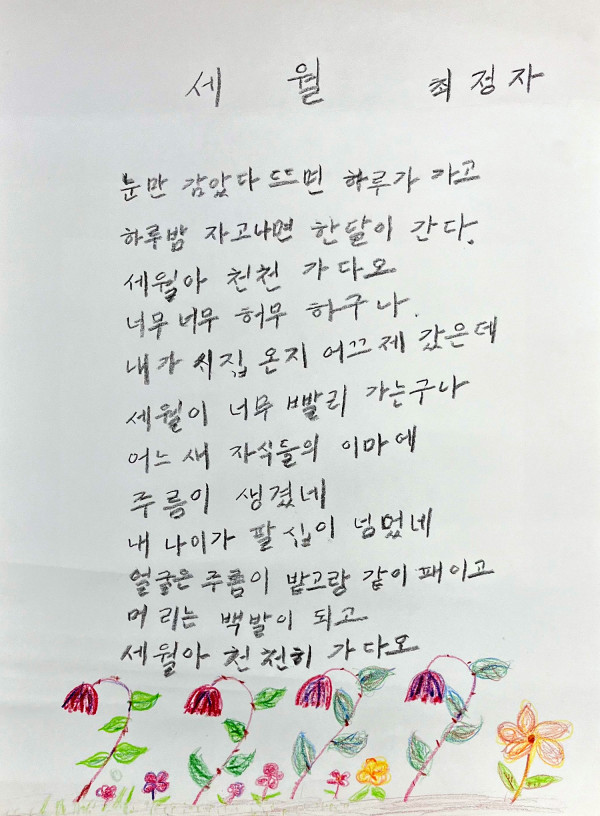 세 월 최정자
눈만 감았다 뜨면 하루가 가고
하루밤 자고나면 한달이 간다.
세월아 천천 가다오
너무 너무 허무 하구나.
내가 시집 온지 어끄제 갔은데
세월이 너무 빨리 가는구나
어느 새 자식들의 이마에
주름이 생겼네
내 나이가 팔십이 넘었네
얼굴은 주름이 밭고랑 같이 패이고
머리는 백발이 되고
세월아 천천히 가다오